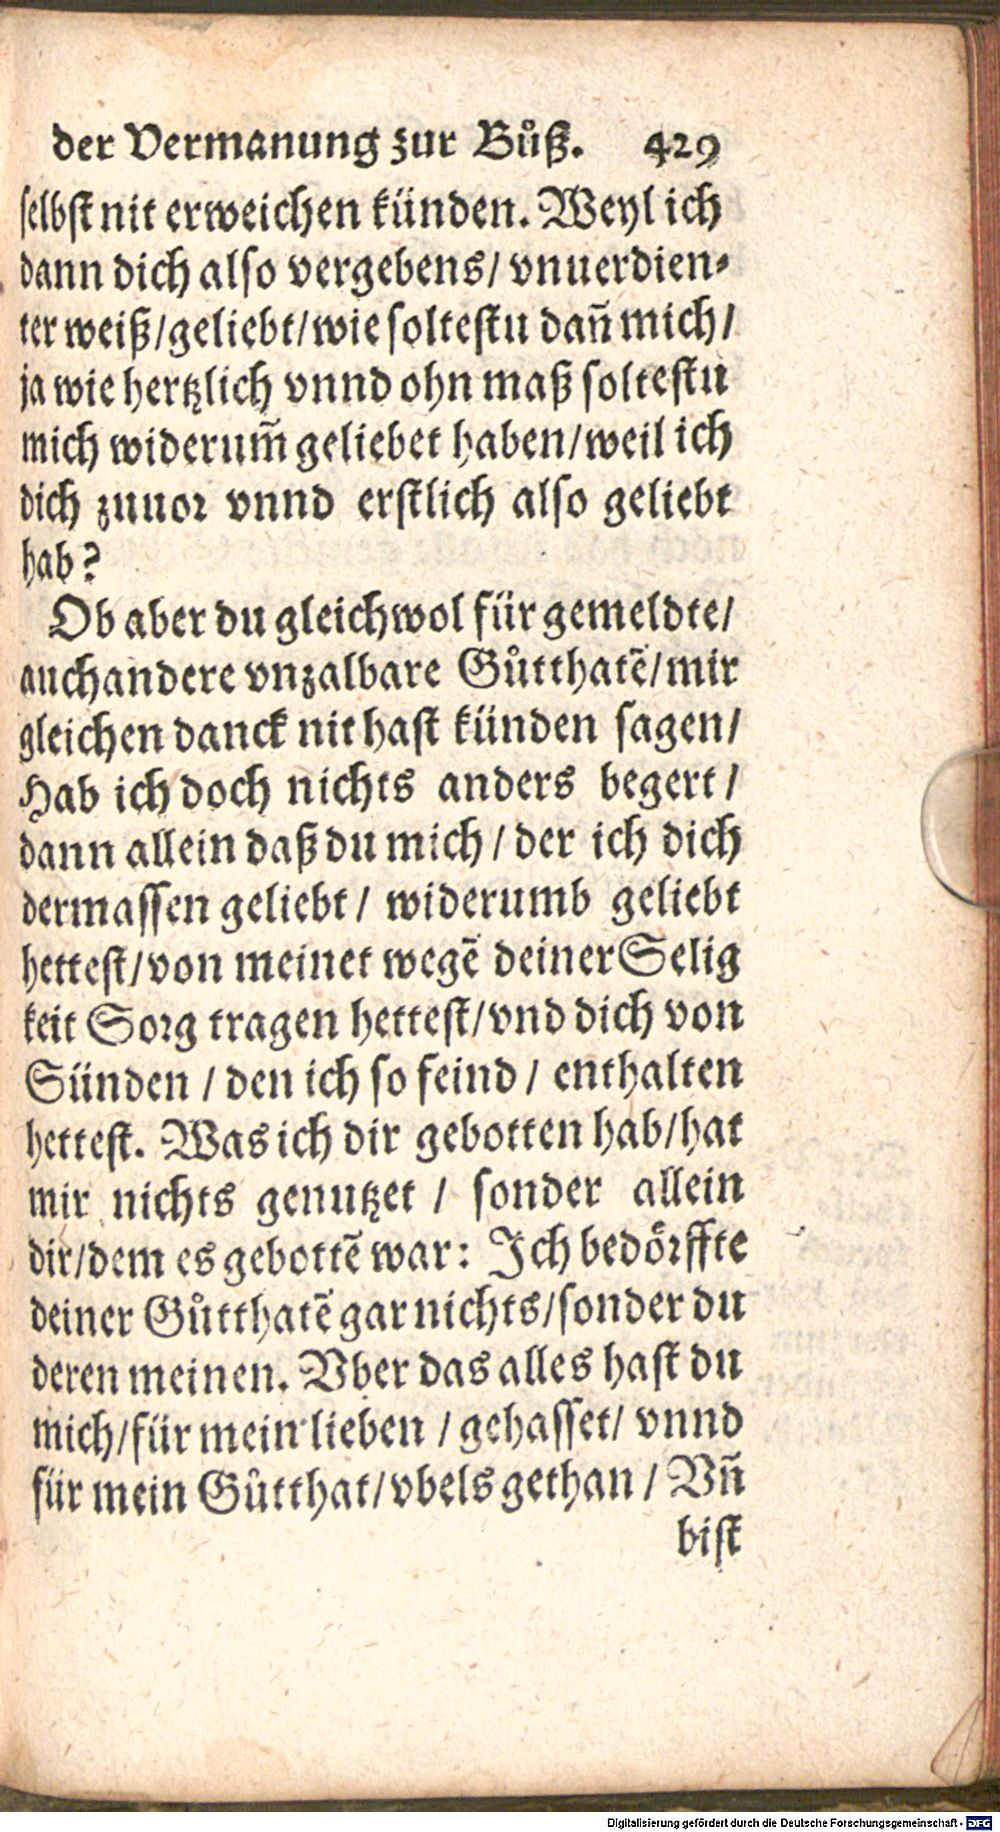 der Vermanung zur Bůß. 429
selbst nit erweichen künden. Weyl ich
dann dich also vergebens/ vnuerdien⸗
ter weiß/geliebt/wie soltestu dañ mich/
ja wie hertzlich vnnd ohn maß soltestu
mich widerum̃ geliebet haben/weil ich
dich zuuor vnnd erstlich also geliebt
hab?
Ob aber du gleichwol für gemeldte/
auch andere vnzalbare Gůtthatẽ/mir
gleichen danck nit hast künden sagen/
Hab ich doch nichts anders begert/
dann allein daß du mich/ der ich dich
dermassen geliebt/ widerumb geliebt
hettest/von meinet wegẽ deiner Selig
keit Sorg tragen hettest/vnd dich von
Sünden / den ich so feind / enthalten
hettest. Was ich dir gebotten hab/hat
mir nichts genutzet / sonder allein
dir/dem es gebottẽ war: Ich bedörffte
deiner Gůtthatẽ gar nichts/sonder du
deren meinen. Vber das alles hast du
mich/für mein lieben / gehasset/ vnnd
für mein Gůtthat/vbels gethan / Vñ
bist
Digitalisierung gefördert durch die Deutsche Forschungsgemeinschaft - DFG